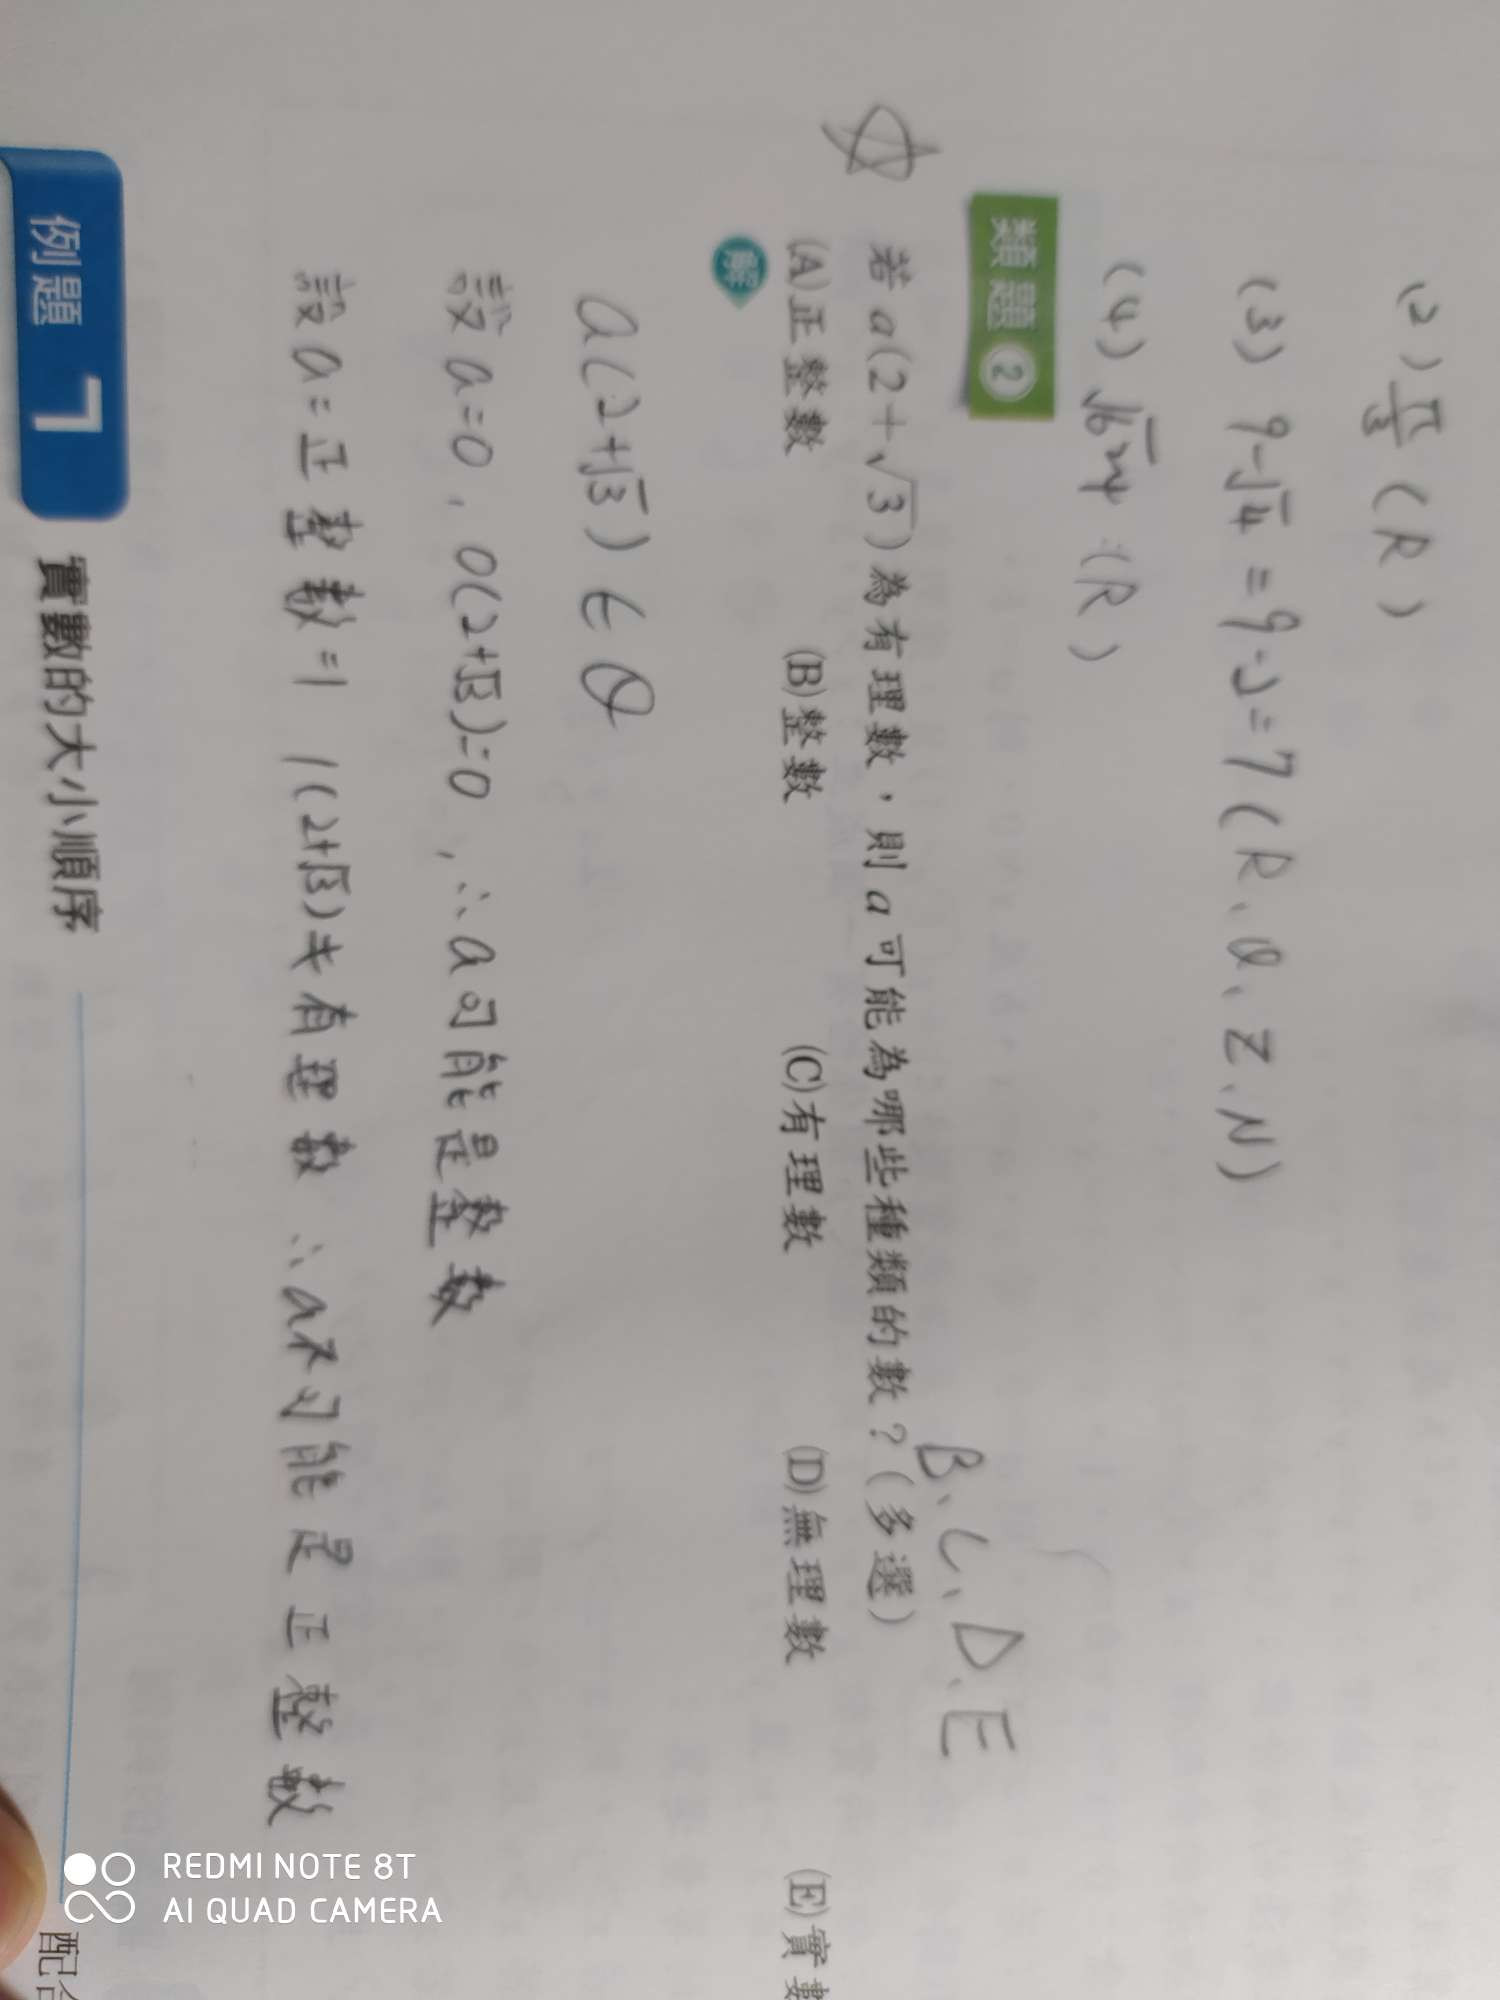 (2) π/3 (R)
(3) 9-√4 = 9-2 = 7 (R、Q、Z、N)
(R)
類題 2
B、C、D、E
若 a(2+√3) 為有理數，則 a 可能為哪些種類的數？(多選)
(A)正整數 (B)整數 (C)有理數 (D)無理數 (E)實數
解
a(2+√3) ∈ Q
設 a=0，0(2+√3)=0，∴a可能是整數
設 a=正整數=1 1(2+√3)≠有理數 ∴a不可能是正整數
例題 7 實數的大小順序
配合
REDMI NOTE 8T
AI QUAD CAMERA